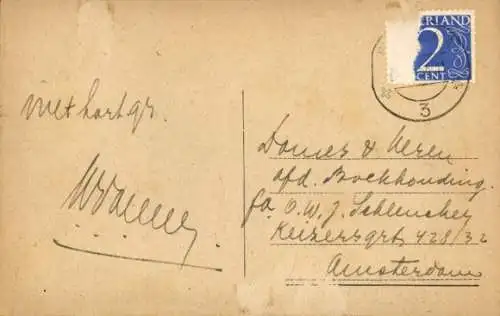 ERLAND
2
CENT
3
met hart gr.
Dames & Heren
afd. Boekhouding
fa. O.W.J. Schlencker
Keizersgrt 428/32
Amsterdam